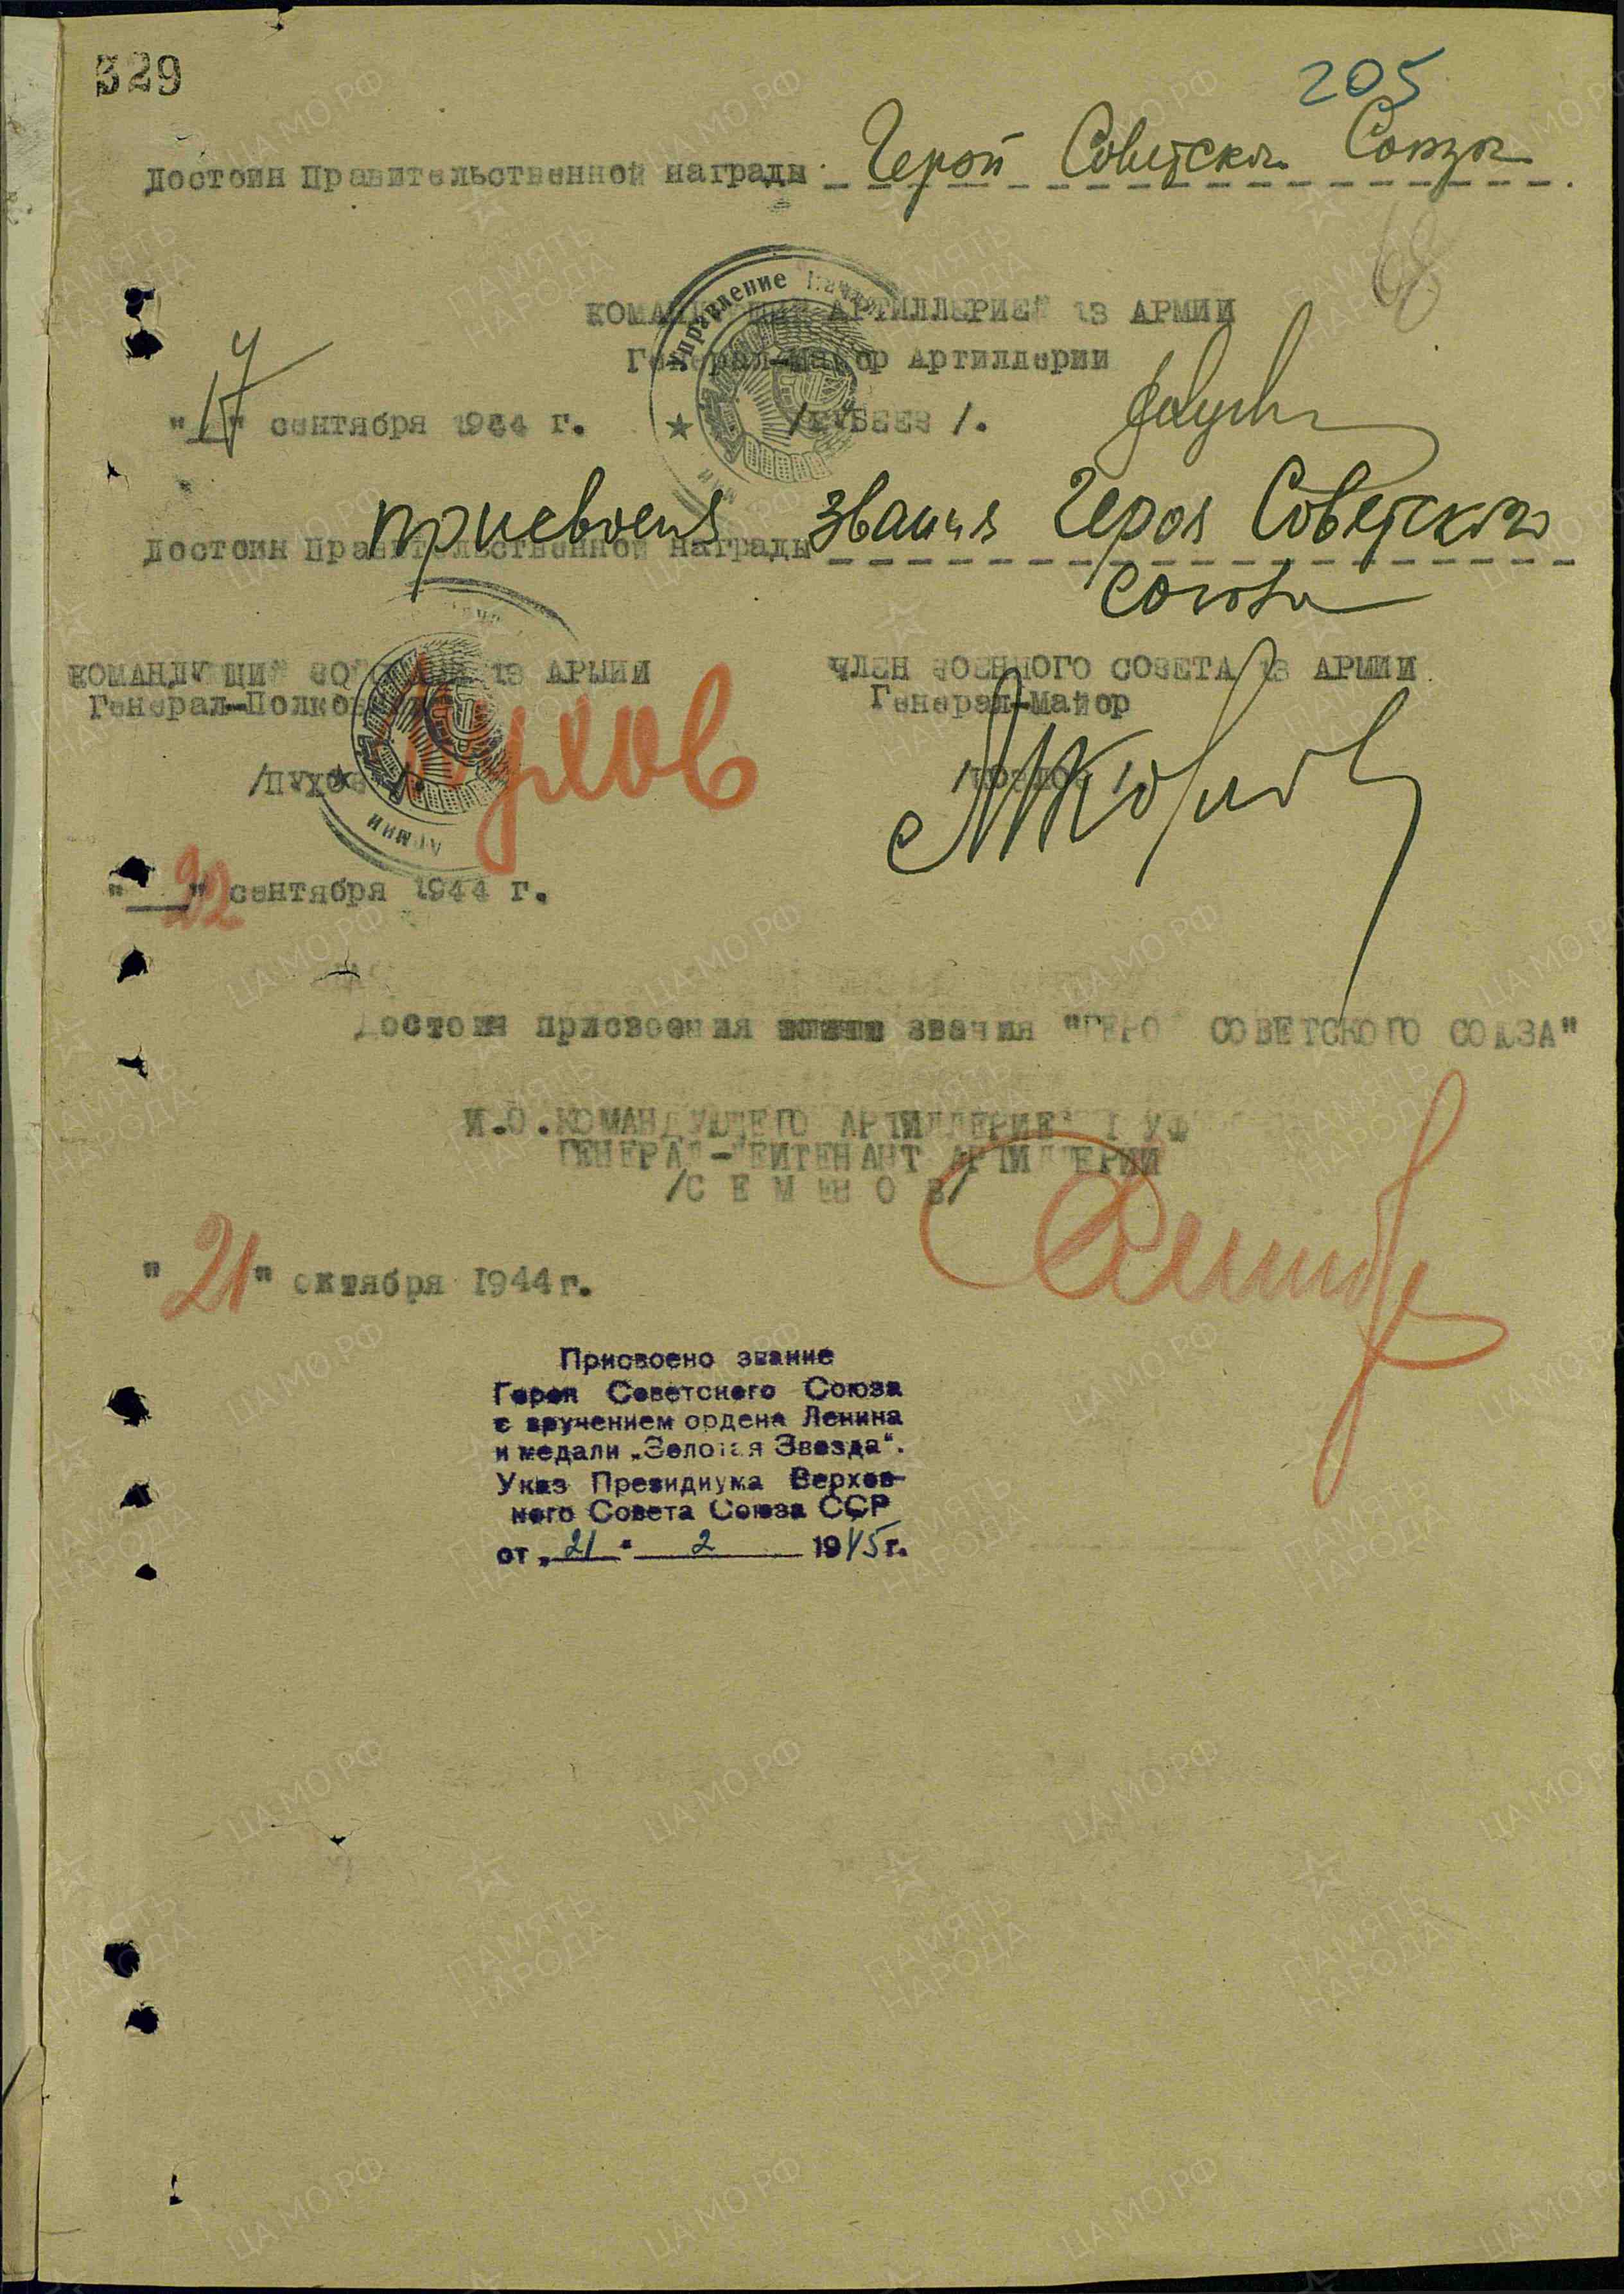 329
205
Достоин Правительственной награды Герой Советско Союза
68
КОМАНДУЮЩИЙ АРТИЛЛЕРИЕЙ 13 АРМИИ
Генерал-майор Артиллерии
"17" сентября 1944 г.
Управление
присвоения звания Героя Советского
Достоин Правительственной награды
Союза
КОМАНДУЮЩИЙ ВОЙСКАМИ 13 АРМИИ
ЧЛЕН ВОЕННОГО СОВЕТА 13 АРМИИ
Генерал-Полковник
Генерал-майор
/ПУХОВ/. Пухов
/КОЗЛОВ/
армии
"22" сентября 1944 г.
Достоин присвоения звания "ГЕРОЙ СОВЕТСКОГО СОЮЗА"
И.О.КОМАНДУЮЩЕГО АРТИЛЛЕРИЕЙ I УФ
ГЕНЕРАЛ-ЛЕЙТЕНАНТ АРТИЛЛЕРИИ
/С Е М Е Н О В/
"21" октября 1944г.
Присвоено звание
Героя Советского Союза
с вручением ордена Ленина
и медали „Золотая Звезда".
Указ Президиума Верхов-
ного Совета Союза ССР
от „21" 2 1945г.
ПАМЯТЬ НАРОДА
ЦА МО РФ